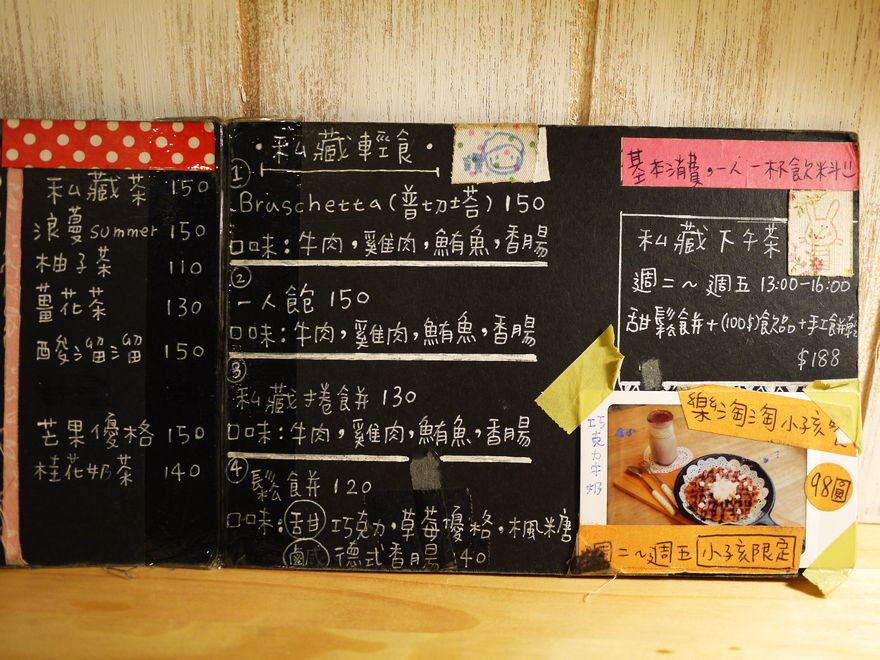 私藏茶 150
浪蔓summer 150
柚子茶 110
薑花茶 130
酸溜溜 150
芒果優格 150
桂花奶茶 140
·私藏輕食·
① Bruschetta(普切塔) 150
口味:牛肉,雞肉,鮪魚,香腸
② 一人飽 150
口味:牛肉,雞肉,鮪魚,香腸
③ 私藏捲餅 130
口味:牛肉,雞肉,鮪魚,香腸
④ 鬆餅 120
口味:甜 巧克力,草莓優格,楓糖
鹹 德式香腸 140
基本消費,一人一杯飲料!!
私藏下午茶
週二~週五 13:00-16:00
甜鬆餅+(100$)飲品+手工餅乾
$188
樂淘淘小孩
巧克力牛奶
98圓
週二~週五 小孩限定